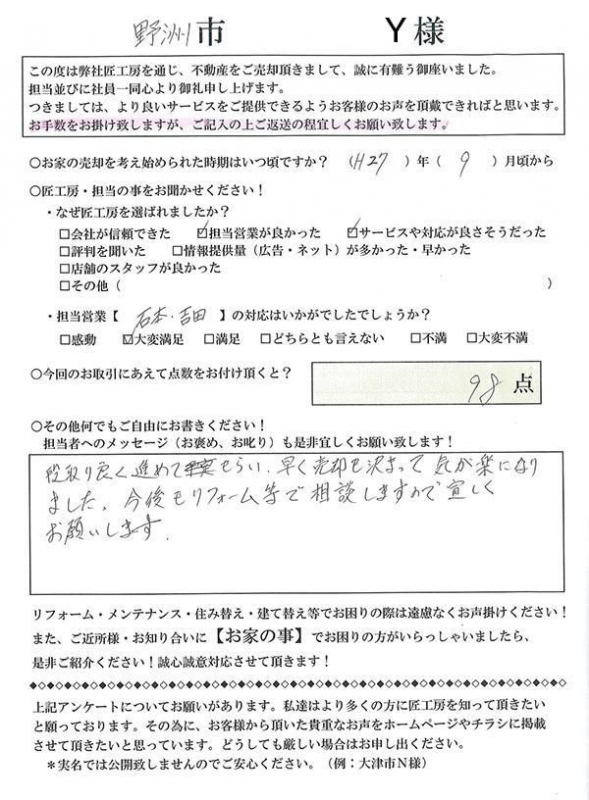 野洲市 Y様
この度は弊社匠工房を通じ、不動産をご売却頂きまして、誠に有難う御座いました。
担当並びに社員一同心より御礼申し上げます。
つきましては、より良いサービスをご提供できるようお客様のお声を頂戴できればと思います。
お手数をお掛け致しますが、ご記入の上ご返送の程宜しくお願い致します。
○お家の売却を考え始められた時期はいつ頃ですか？（H27）年（9）月頃から
○匠工房・担当の事をお聞かせください！
・なぜ匠工房を選ばれましたか？
□会社が信頼できた ☑担当営業が良かった ☑サービスや対応が良さそうだった
□評判を聞いた □情報提供量（広告・ネット）が多かった・早かった
□店舗のスタッフが良かった
□その他（ ）
・担当営業【石本・吉田】の対応はいかがでしたでしょうか？
□感動 ☑大変満足 □満足 □どちらとも言えない □不満 □大変不満
○今回のお取引にあえて点数をお付け頂くと？ 98点
○その他何でもご自由にお書きください！
担当者へのメッセージ（お褒め、お叱り）も是非宜しくお願い致します！
段取り良く進めてもらい、早く売却も決まって気が楽になり
ました。今後もリフォーム等で相談しますので宜しく
お願いします。
リフォーム・メンテナンス・住み替え・建て替え等でお困りの際は遠慮なくお声掛けください！
また、ご近所様・お知り合いに【お家の事】でお困りの方がいらっしゃいましたら、
是非ご紹介ください！誠心誠意対応させて頂きます！
上記アンケートについてお願いがあります。私達はより多くの方に匠工房を知って頂きたい
と願っております。その為に、お客様から頂いた貴重なお声をホームページやチラシに掲載
させて頂きたいと思っています。どうしても厳しい場合はお申し出ください。
＊実名では公開致しませんのでご安心ください。（例：大津市N様）